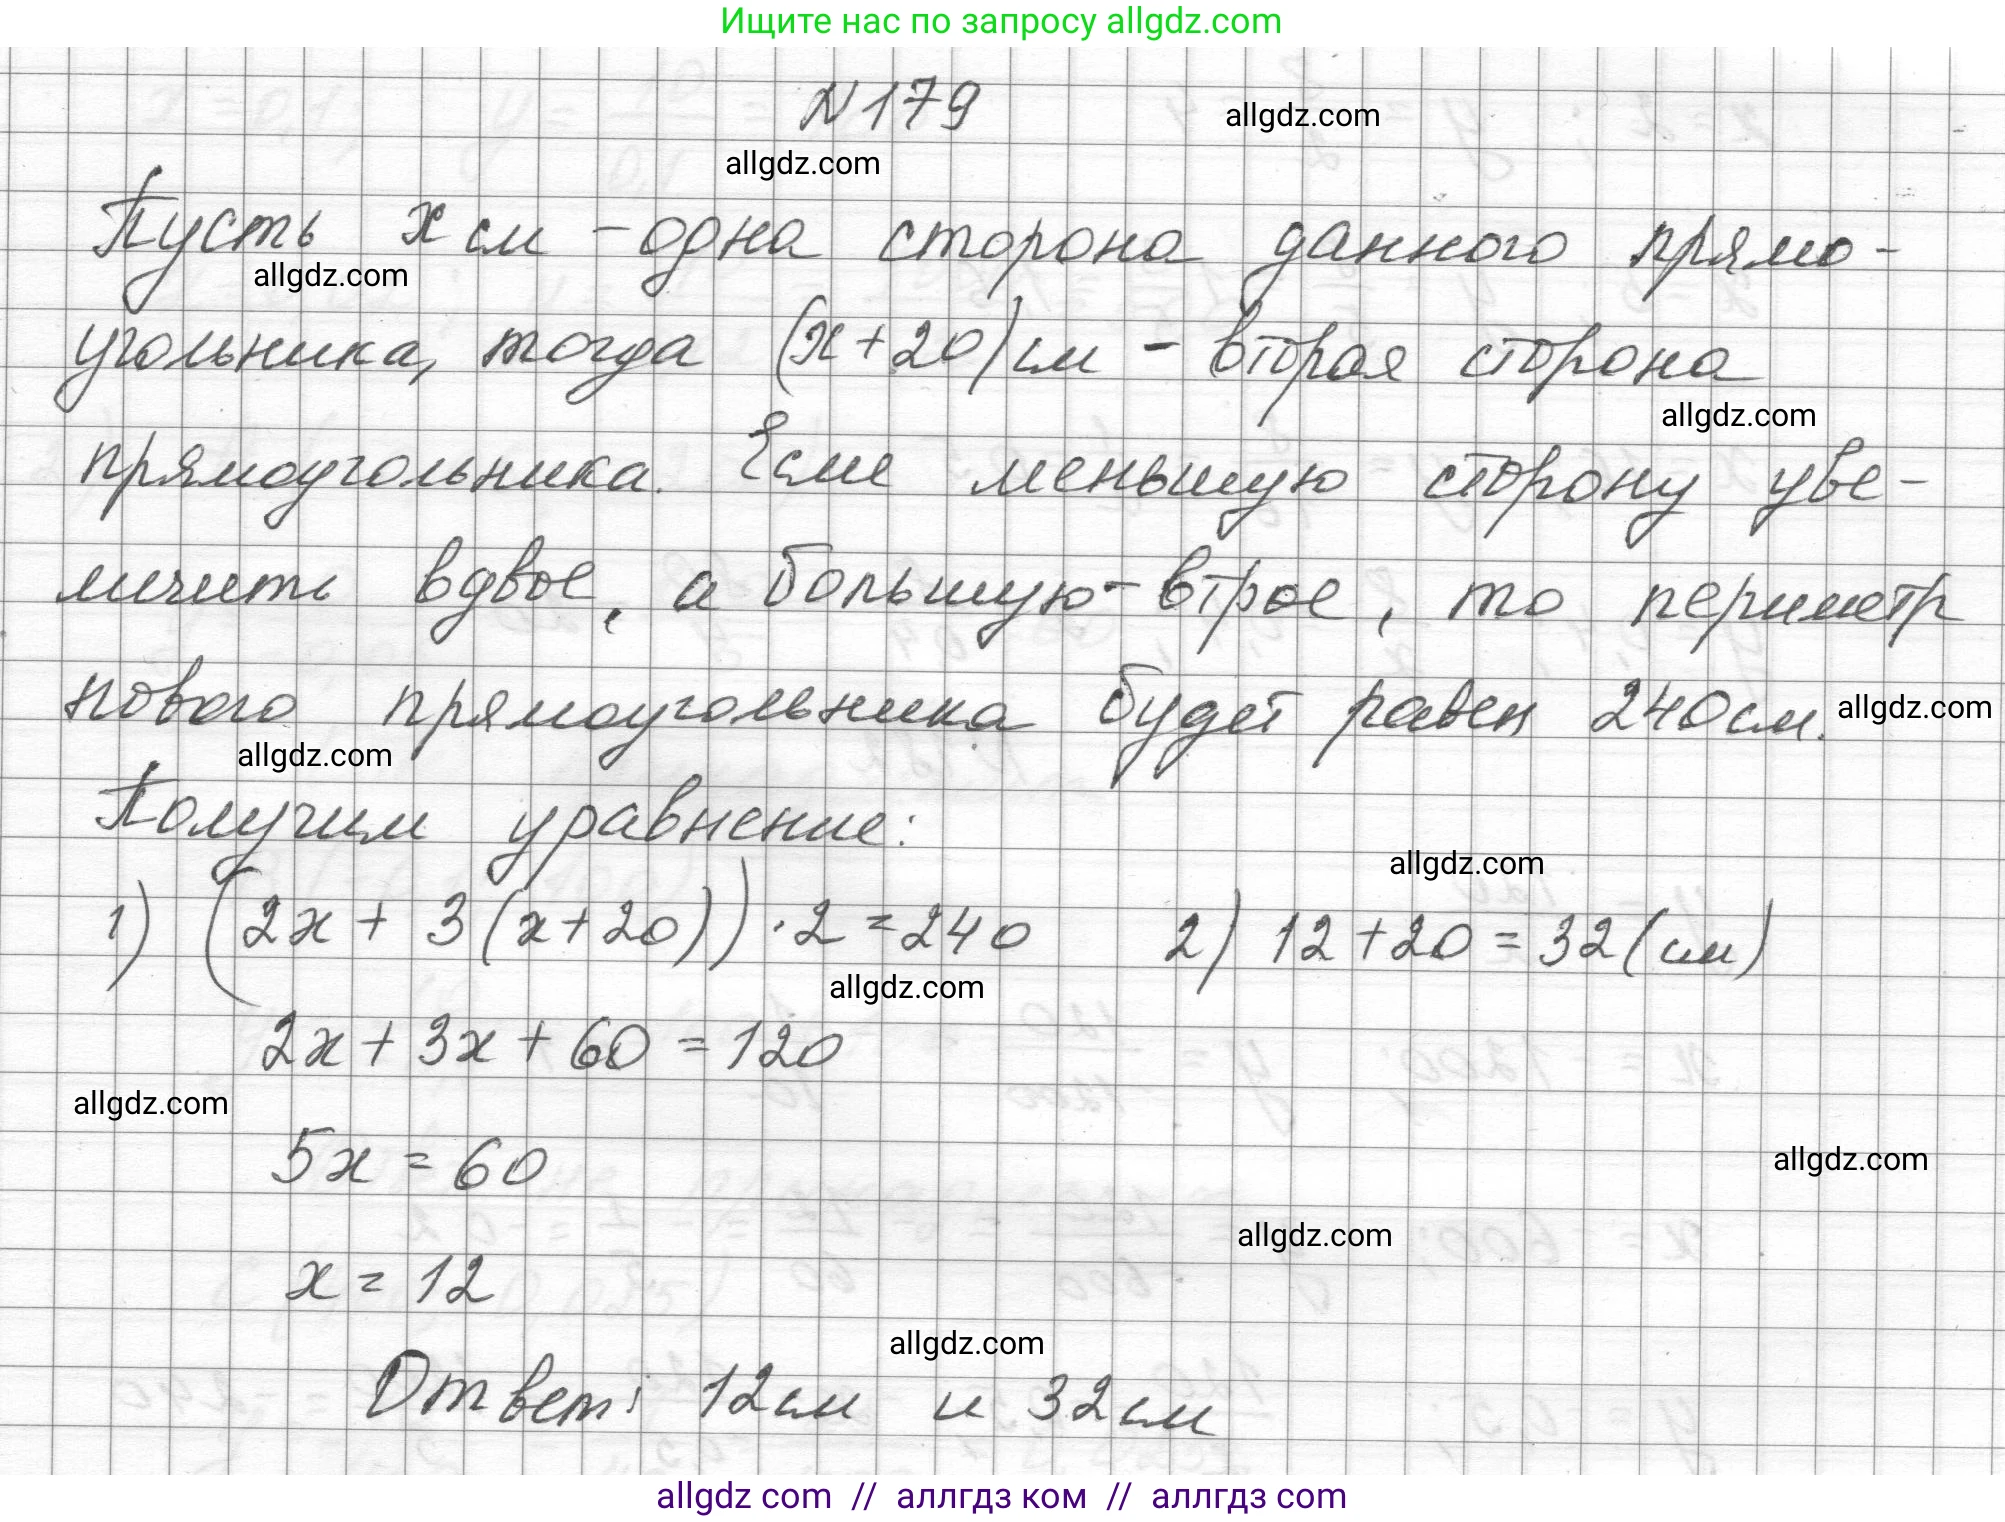 Ищите нас по запросу allgdz.com
N179
allgdz.com
allgdz.com
Пусть x см – одна сторона данного прямо-
allgdz.com
угольника, тогда (x+20) см – вторая сторона
allgdz.com
прямоугольника. Если меньшую сторону уве-
личить вдвое, а большую – втрое, то периметр
нового прямоугольника будет равен 240 см.
allgdz.com
allgdz.com
Получим уравнение:
allgdz.com
1) (2x + 3(x+20)) · 2 = 240
2) 12 + 20 = 32 (см)
allgdz.com
2x + 3x + 60 = 120
allgdz.com
5x = 60
allgdz.com
allgdz.com
x = 12
allgdz.com
Ответ: 12 см и 32 см
allgdz com // аллгдз ком // аллгдз com